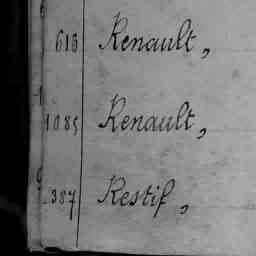 616 Renault,
1085 Renault,
387 Restif,